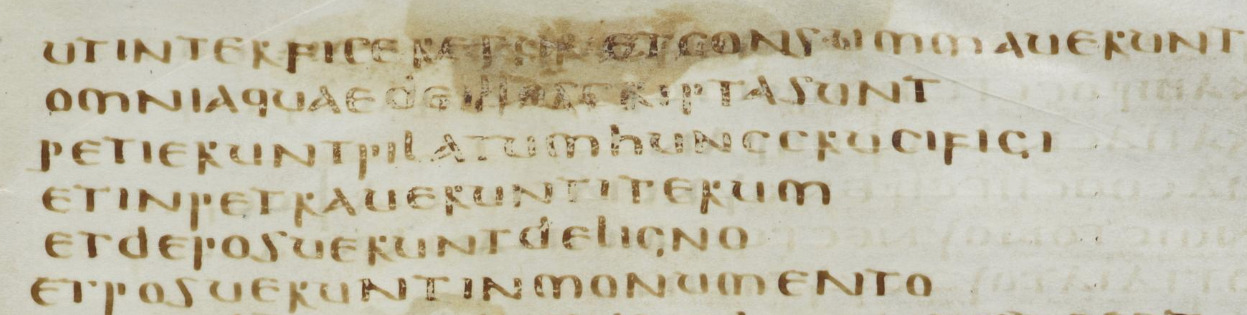 utinterficereturetconsummauerunt
omniaquaedeilloscriptasunt
petieruntpilatumhunccrucifigi
etinpetraueruntiterum
etdeposueruntdeligno
etposueruntinmonumento